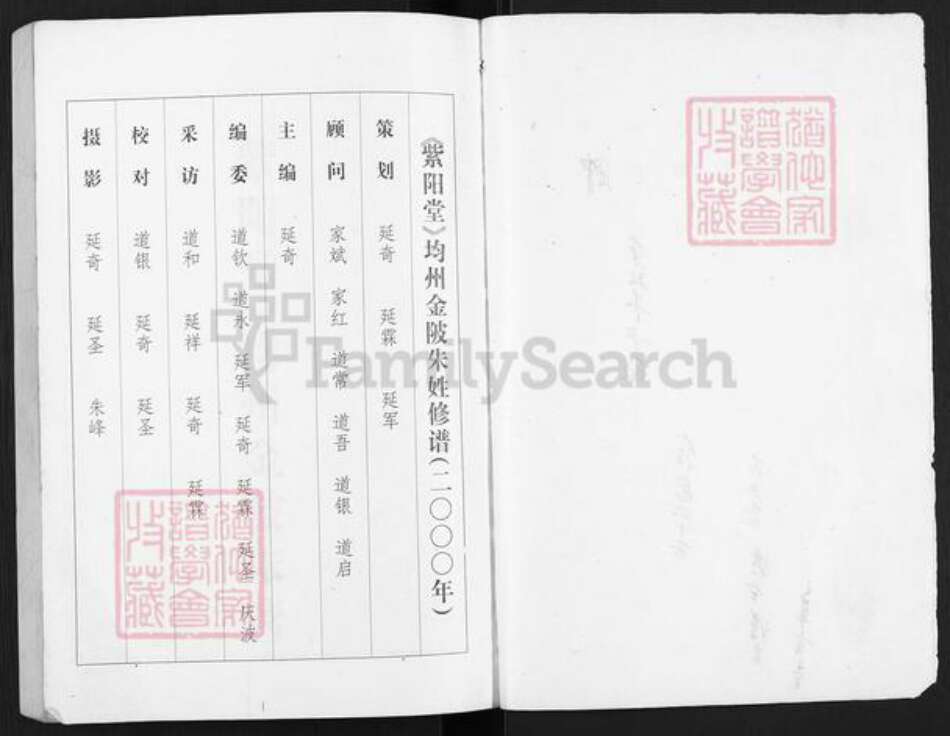 《紫阳堂》均州金陂朱姓修谱(二〇〇〇年)
策划 延奇 延霖 延军
顾问 家斌 家红 道常 道吾 道银 道启
主编 延奇
编委 道钦 道永 延军 延奇 延霖 延圣 庆波
采访 道和 延祥 延奇 延霖
校对 道银 延奇 延圣
摄影 延奇 延圣 朱峰
FamilySearch
猶他家
譜學會
收藏
猶他家
譜學會
收藏